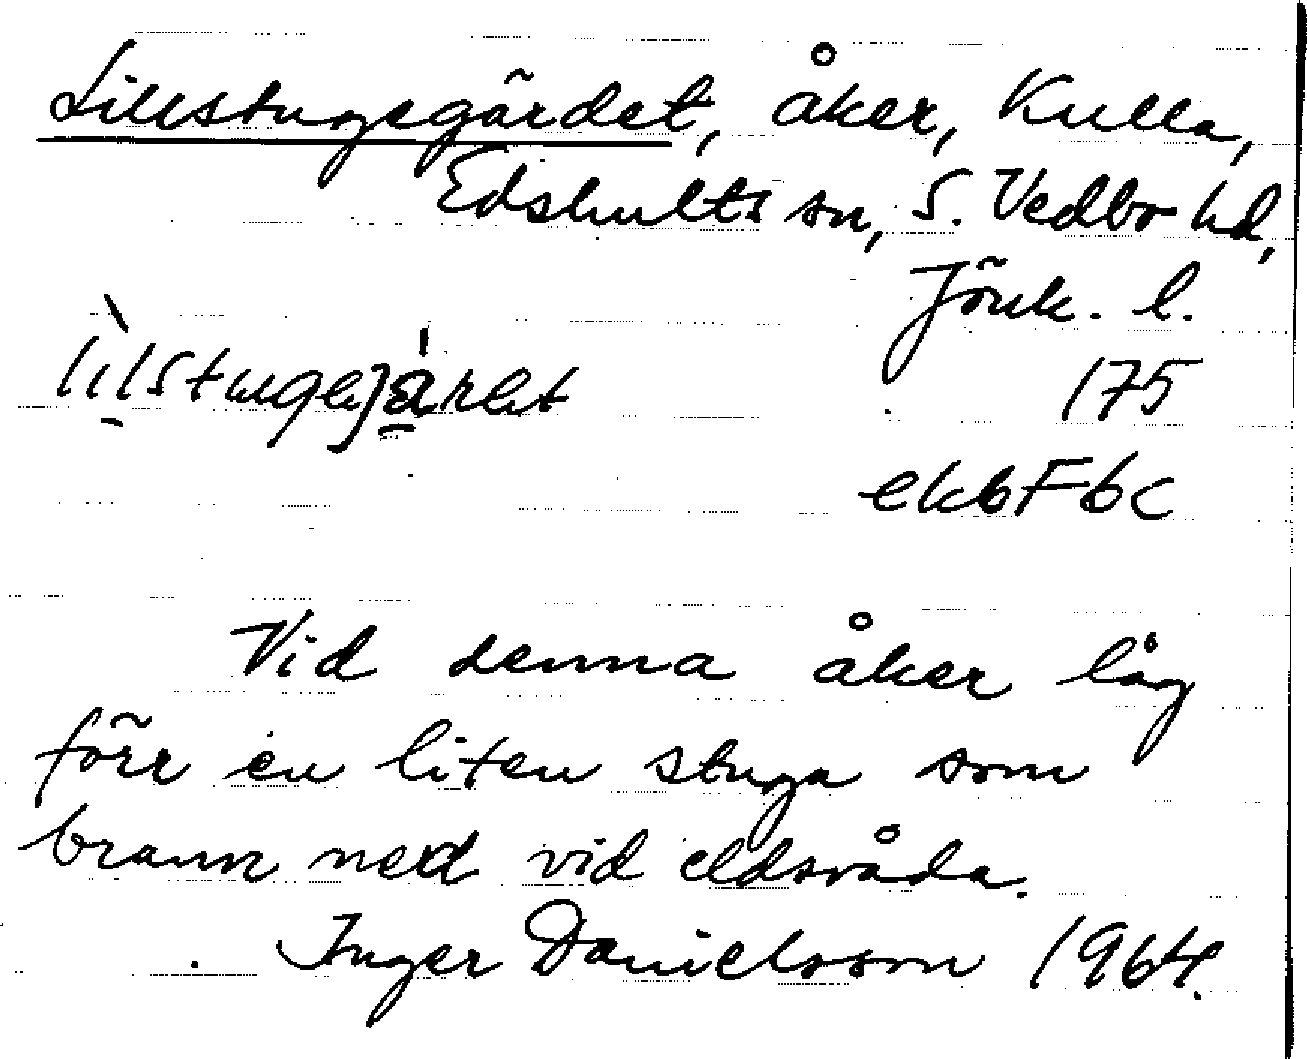 Lillstugegärdet, åker, Kulla,
Edshults sn, S. Vedbo hd,
Jönk. l.
175
ekbFbc
Vid denna åker låg
förr en liten stuga som
brann ned vid eldsvåda.
Inger Danielsson 1964.